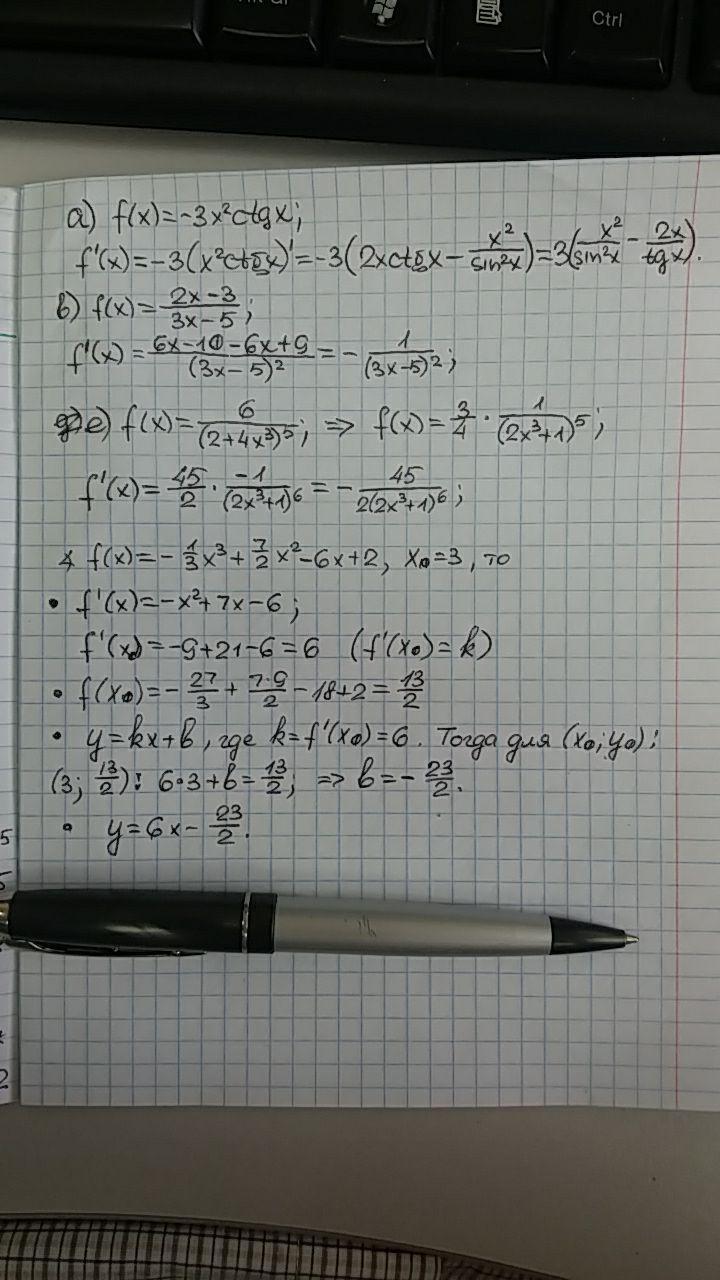 Ctrl
а) f(x)=-3x²ctgx;
f'(x)=-3(x²ctgx)'=-3(2xctgx-x²/sin²x)=3(x²/sin²x-2x/tgx).
в) f(x)=(2x-3)/(3x-5);
f'(x)=(6x-10-6x+9)/(3x-5)²=-1/(3x-5)²;
е) f(x)=6/(2+4x³)⁵; ⇒ f(x)=3/4·1/(2x³+1)⁵;
f'(x)=45/2·-1/(2x³+1)⁶=-45/2(2x³+1)⁶;
4 f(x)=-1/3x³+7/2x²-6x+2, x₀=3, то
• f'(x)=-x²+7x-6;
f'(x₀)=-9+21-6=6 (f'(x₀)=k)
• f(x₀)=-27/3+7·9/2-18+2=13/2
• y=kx+b, где k=f'(x₀)=6. Тогда для (x₀;y₀):
(3; 13/2): 6·3+b=13/2; ⇒ b=-23/2.
• y=6x-23/2.